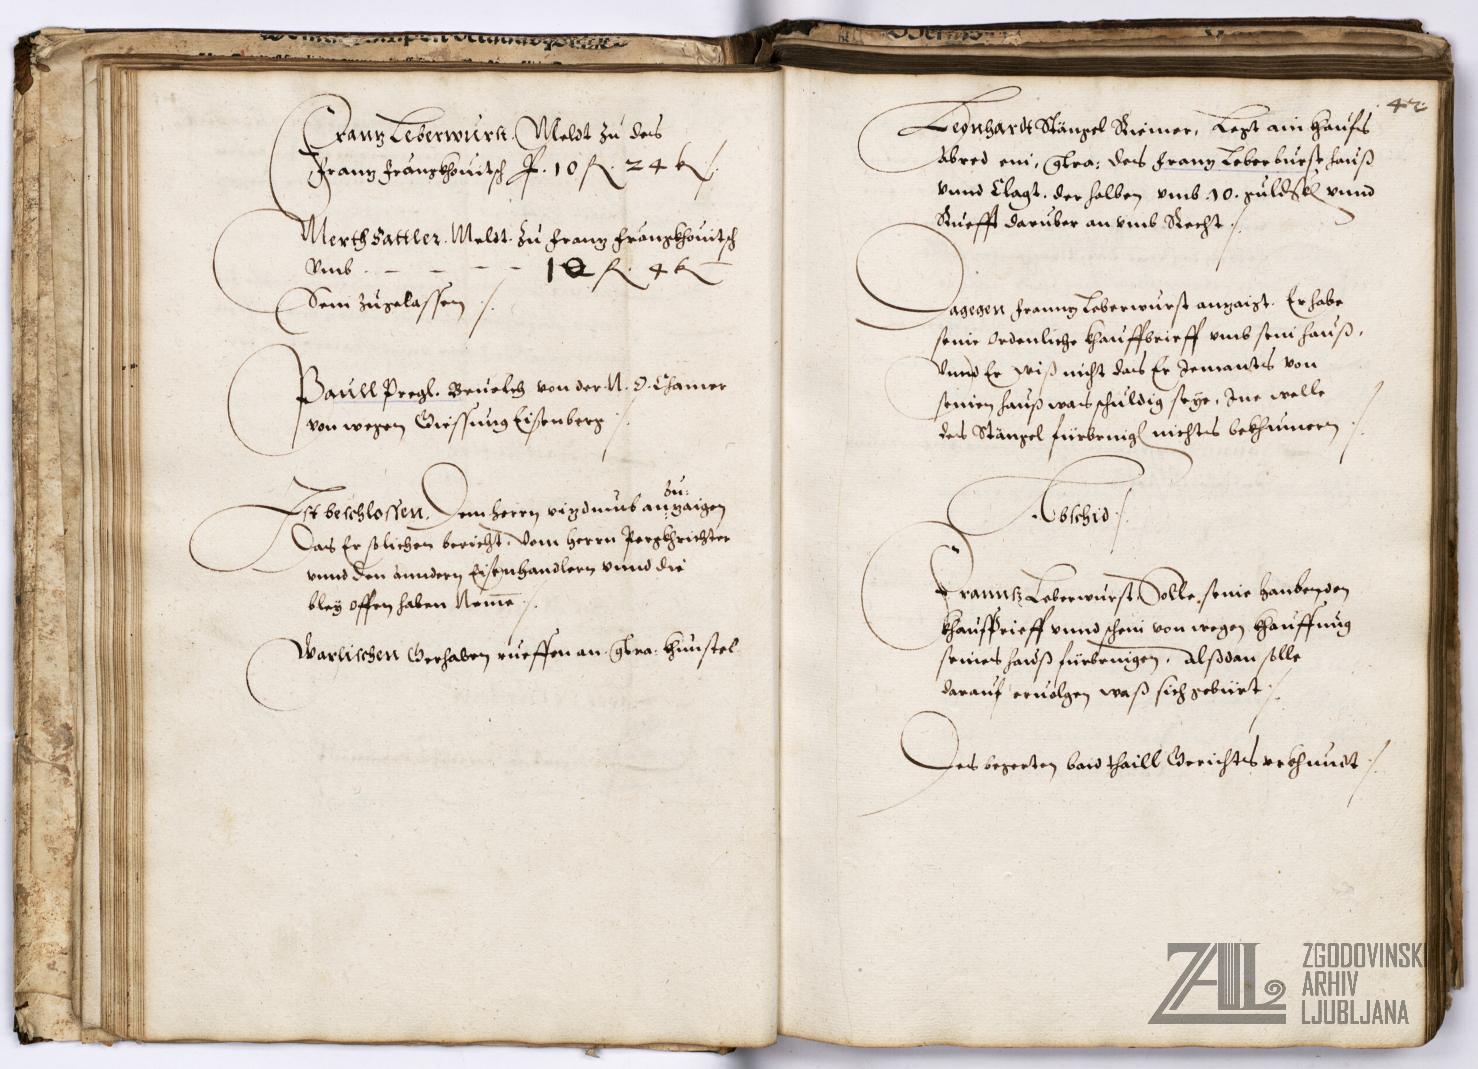 Franz Leberwurst. Meldt zu des
Franz Franzkhouitsch P. 10 fl. 24 kr ./.
Merth Sattler. Meldt. Zu Franz Franzkhouitsch
vmb . – – – – 10 fl. 4 kr
Sein zugelassen ./.
Paull Pregl. Beuelch von der N. Ö. Chamer
von wegen Giessung Eisenberg ./.
Ist beschlossen. Dem herrn vizdomb anzuzaigen
Das Er solichen bericht, vom herrn Perckhrichter
vnnd den anndern Eisenhandlern vnnd die
bley offen haben Neme ./.
Warlischen Gerhaben rueffen an
42
Leonhardt Stänzel Riemer, Legt ain Haufs
Abred ein, des Franz Leberburst hauß
vnnd Clagt. derhalben vmb .10. vnnd
Ruefft daruber an vmb Recht ./.
Dagegen Franz Leberwurst anzaigt. Er habe
seine Ordenliche khauffbrieff vmb sein hauß,
vnnd Er wiß nicht das Er Jemants von
seinen hauß was schuldig seye, Ine welle
des Stänzel fürbringen nichts bekhumern ./.
Abschid ./.
Franntz Leberwurst, Solle, seine habenden
khauffbrieff vnnd schein von wegen Khauffung
seines hauß fürbringen. Alßdan solle
darauf eruolgen waß sich gebürt ./.
Des begerten baid thaill Gerichts vrkhundt ./.
ZAL ZGODOVINSKI
ARHIV
LJUBLJANA